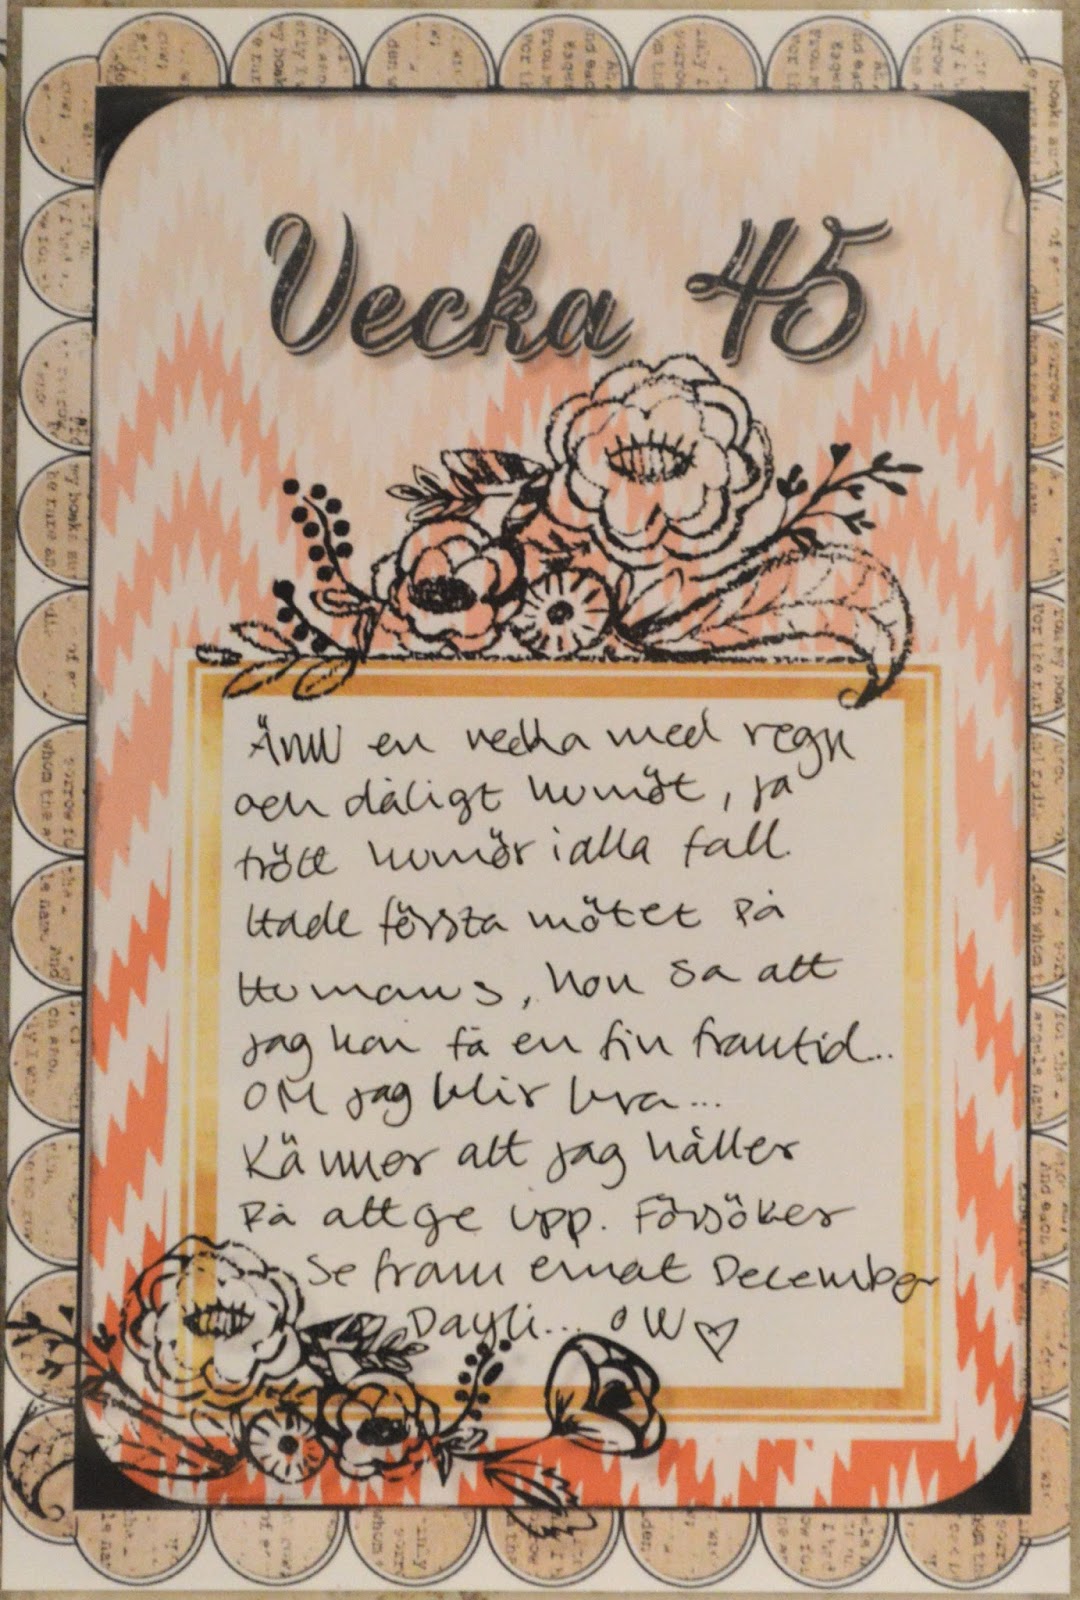 Vecka 45
Ännu en vecka med regn
och dåligt humör, ja
trött humör i alla fall.
Hade första mötet på
Humanus, hon sa att
jag kan få en fin framtid...
OM jag blir bra...
Känner att jag håller
på att ge upp. Försöker
se fram emot December
Dayli...